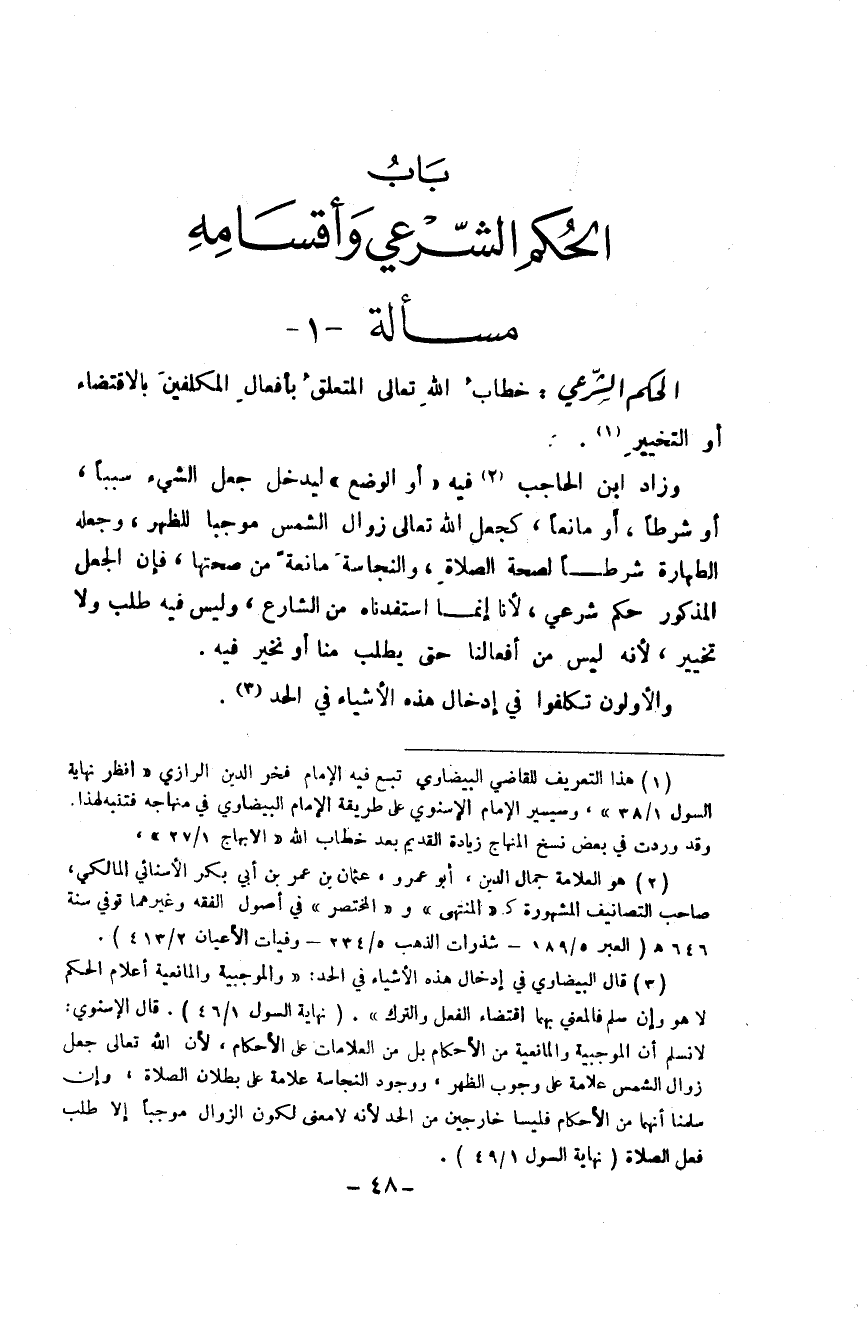 بَابُ
الحُكم الشّرْعي وَأقسَامِهِ
مسألة -١-
الحكم الشِّرعي : خطابُ اللهِ تعالى المتعلقُ بأفعالِ المكلفينَ بالاقتضاء
أو التخييرِ (١) .
وزاد ابن الحاجب (٢) فيه « أو الوضع » ليدخل جعل الشيء سبباً ،
أو شرطاً ، أو مانعاً ، كجعل الله تعالى زوال الشمس موجبا للظهر ، وجعله
الطهارة شرطاً لصحة الصلاةِ ، والنجاسةَ مانعةً من صحتها ، فإن الجعل
المذكور حكم شرعي ، لأنا إنما استفدناه من الشارع ، وليس فيه طلب ولا
تخيير ، لأنه ليس من أفعالنا حتى يطلب منا أو نخير فيه .
والأولون تكلفوا في إدخال هذه الأشياء في الحد (٣) .
(١) هذا التعريف للقاضي البيضاوي تبع فيه الإمام فخر الدين الرازي « انظر نهاية
السول ٣٨/١ » ، وسيسير الإمام الإسنوي على طريقة الإمام البيضاوي في منهاجه فتنبه لهذا.
وقد وردت في بعض نسخ المنهاج زيادة القديم بعد خطاب الله « الابهاج ٢٧/١ » ،
(٢) هو العلامة جمال الدين ، أبو عمرو ، عثمان بن عمر بن أبي بكر الأسنائي المالكي،
صاحب التصانيف المشهورة كـ « المنتهى » و « المختصر » في أصول الفقه وغيرهما توفي سنة
٦٤٦ ه ( العبر ١٨٩/٥ – شذرات الذهب ٢٣٤/٥ – وفيات الأعيان ٤١٣/٢ ) .
(٣) قال البيضاوي في إدخال هذه الأشياء في الحد: « والموجبية والمانعية أعلام الحكم
لا هو وإن سلم فالمعني بهما اقتضاء الفعل والترك » . ( نهاية السول ٤٦/١ ) . قال الإسنوي:
لانسلم أن الموجبية والمانعية من الأحكام بل من العلامات على الأحكام ، لأن الله تعالى جعل
زوال الشمس علامة على وجوب الظهر ، ووجود النجاسة علامة على بطلان الصلاة ، وإن
سلمنا أنهما من الأحكام فليسا خارجين من الحد لأنه لامعنى لكون الزوال موجباً إلا طلب
فعل الصلاة ( نهاية السول ٤٩/١ ) .
– ٤٨ –